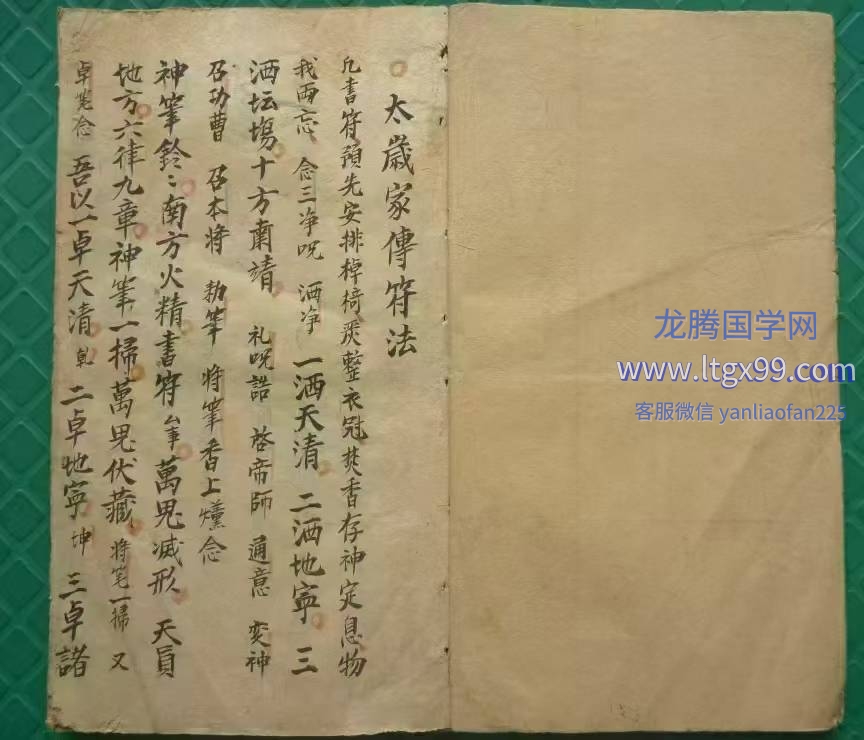 太歲家傳符法
凡書符預先安排棹椅炭整衣冠焚香存神定息物
我両忘 念三净呪 洒净 一洒天清 二洒地寧 三
洒坛塲十方肅靖 礼呪誥 啓帝師 通意 变神
召功曹 召本将 勑筆 将筆香上燻念
神筆鈴〻南方火精書符 萬鬼滅形 天員
地方六律九章神筆一掃萬鬼伏藏 将笔一掃 又
卓笔念 吾以一卓天清 乾 二卓地寧 坤 三卓諸
龙腾国学网
www.ltgx99.com
客服微信 yanliaofan225